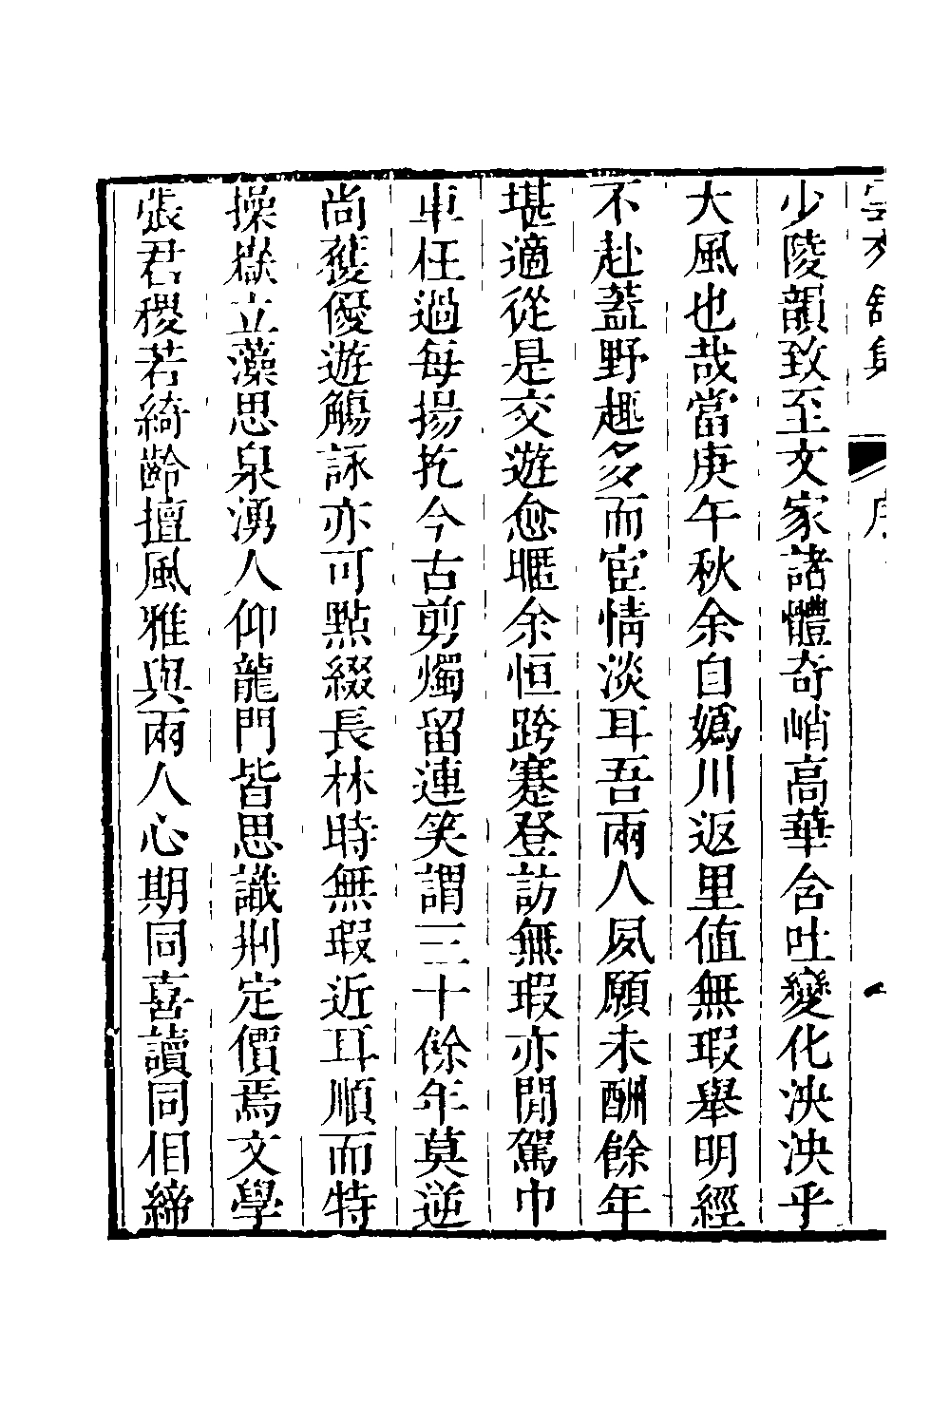 少陵韻致至文家諸體奇峭高華含吐變化泱泱乎
大風也哉當庚午秋余自嬀川返里値無瑕舉明經
不赴蓋野趣多而宦情淡耳吾兩人夙願未酬餘年
堪適從是交遊愈暱余恒跨蹇登訪無瑕亦閒駕巾
車枉過每揚扢今古剪燭留連笑謂三十餘年莫逆
尚獲優遊觴詠亦可點綴長林時無瑕近耳順而特
操嶽立藻思泉湧人仰龍門皆思識荆定價焉文學
張君稷若綺齡擅風雅與兩人心期同喜讀同相締